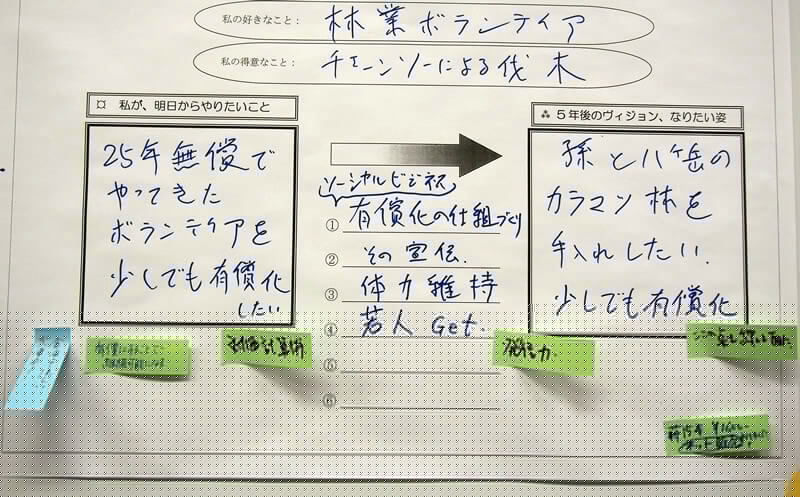 私の好きなこと： 林業ボランティア
私の得意なこと： チェーンソーによる伐木
¤ 私が、明日からやりたいこと
25年無償で
やってきた
ボランティアを
少しでも有償化
したい
ソーシャルビジネス
① 有償化の仕組づくり
② その宣伝.
③ 体力維持
④ 若人Get.
⑤
⑥
⁂ 5年後のヴィジョン、なりたい姿
孫と八ヶ岳の
カラマツ林を
手入れしたい.
少しでも有償化
発信力.